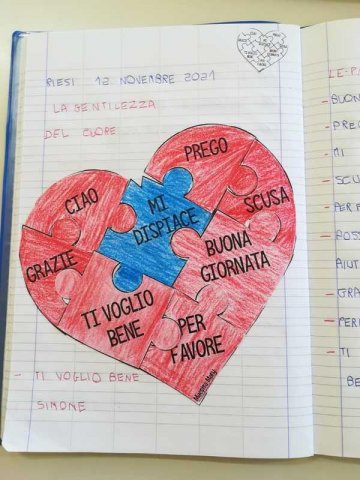 RIESI 12 NOVEMBRE 2021
LA GENTILEZZA
DEL CUORE
PREGO
CIAO
MI
DISPIACE
SCUSA
GRAZIE
BUONA
GIORNATA
TI VOGLIO
BENE
PER
FAVORE
- TI VOGLIO BENE
SIMONE
LE-P
- BUON
- PREG
- MI
- SCU
- PER F
- POSS
AIUT
- GRA
- PER
- TI
BE